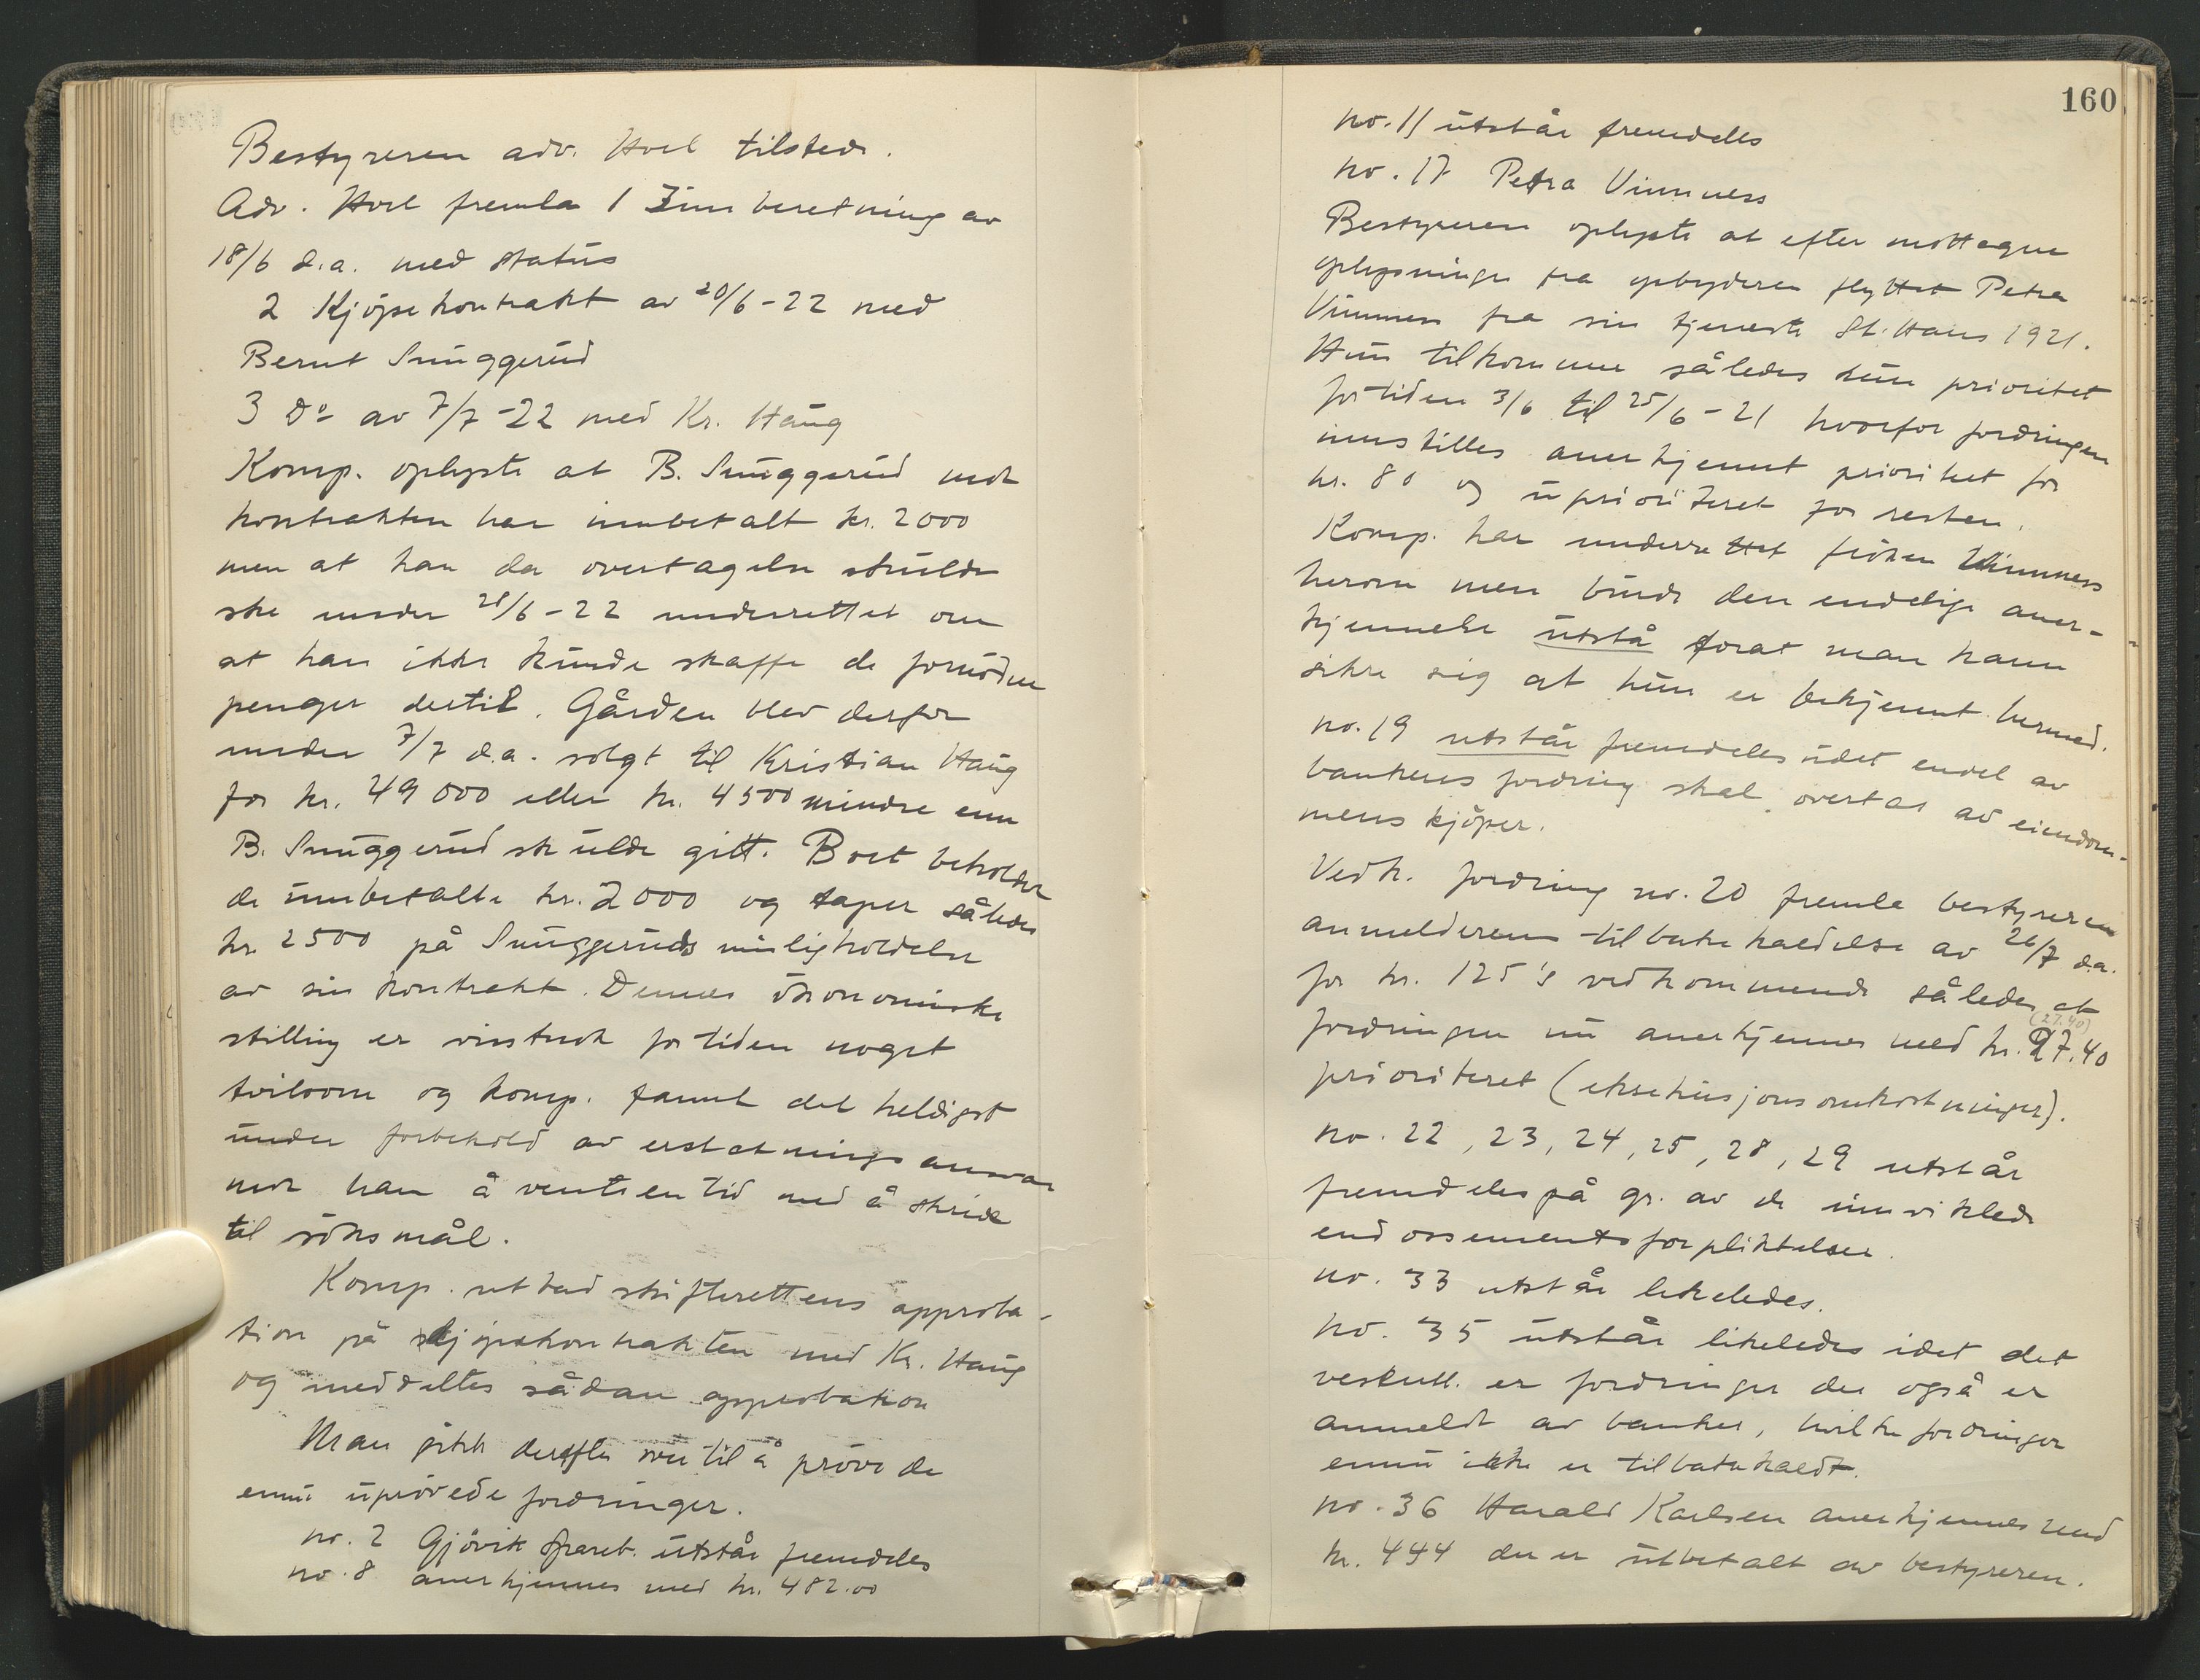 Bestyreren adv. Hoel tilstede.
Adv. Hoel fremla 1 Innberetning av
18/6 d.a. med status
2 Kjöpekontrakt av 20/6-22 med
Bernt Snuggerud
3 Do av 7/7-22 med Kr. Haug
Komp. oplyste at B. Snuggerud ved
kontrakten har innbetalt kr. 2000
men at han da overtagelse skulde
ske under 28/6-22 underrettet om
at han ikke kunde skaffe de fornödne
penger dertil. Gården blev derfor
under 7/7 d.a. solgt til Kristian Haug
for kr. 49000 eller kr. 4500 mindre enn
B. Snuggerud skulde gitt. Boet beholder
de innbetalte kr. 2000 og taper således
kr. 2500 på Snuggeruds misligholdelse
av sin kontrakt. Dennes ökonomiske
stilling er visstnok for tiden noget
tvilsom og komp. fannt det heldigst
under forbehold av erstatningsansvar
mot ham å vente en tid med å skride
til söksmål.
Komp. utbad skifterettens approba-
tion på kjöpekontrakten med Kr. Haug
og meddeltes sådan approbation
Man gikk derefter over til å pröve de
ennu upróvede fordringer.
no. 2 Gjövik Spareb. utstår fremdeles
no. 8 anerkjennes med kr. 482.00
160
no. 11 utstår fremdeles
no. 17 Petra Vinnness
Bestyreren oplyste at efter mottagne
oplysninger fra opbyderen flyttet Petra
Vinnness fra sin tjeneste St. Hans 1921.
Hun tilkommer således kun prioritet
for tiden 3/6 til 25/6-21 hvorfor fordringen
innstilles anerkjennt prioritet for
kr. 80 og uprioriteret for resten.
Komp. har underrettet fröken Vinnness
herom men burde den endelige aner-
kjennelse utstå forat man kann
sikre sig at hun er bekjennt hermed.
no. 19 utstår fremdeles idet endel av
bankens fordring skal overtas av eiendom-
mens kjöper.
Vedk. fordring no. 20 fremla bestyreren
anmelderens tilbakekaldelse av 26/7 d.a.
for kr. 125's vedkommende således at
(27.40)
fordringen nu anerkjennes med kr. 27.40
prioriteret (eksekusjonsomkostninger).
no. 22, 23, 24, 25, 28, 29 utstår
fremdeles på gr. av de innviklede
endossementsforpliktelser.
no. 33 utstår likeledes.
no. 35 utstår likeledes idet det
vesentl. er fordringer der også er
anmeldt av banker, hvilke fordringer
ennu ikke er tilbakekaldt.
no. 36 Harald Karlsen anerkjennes med
kr. 444 der er utbetalt av bestyreren.